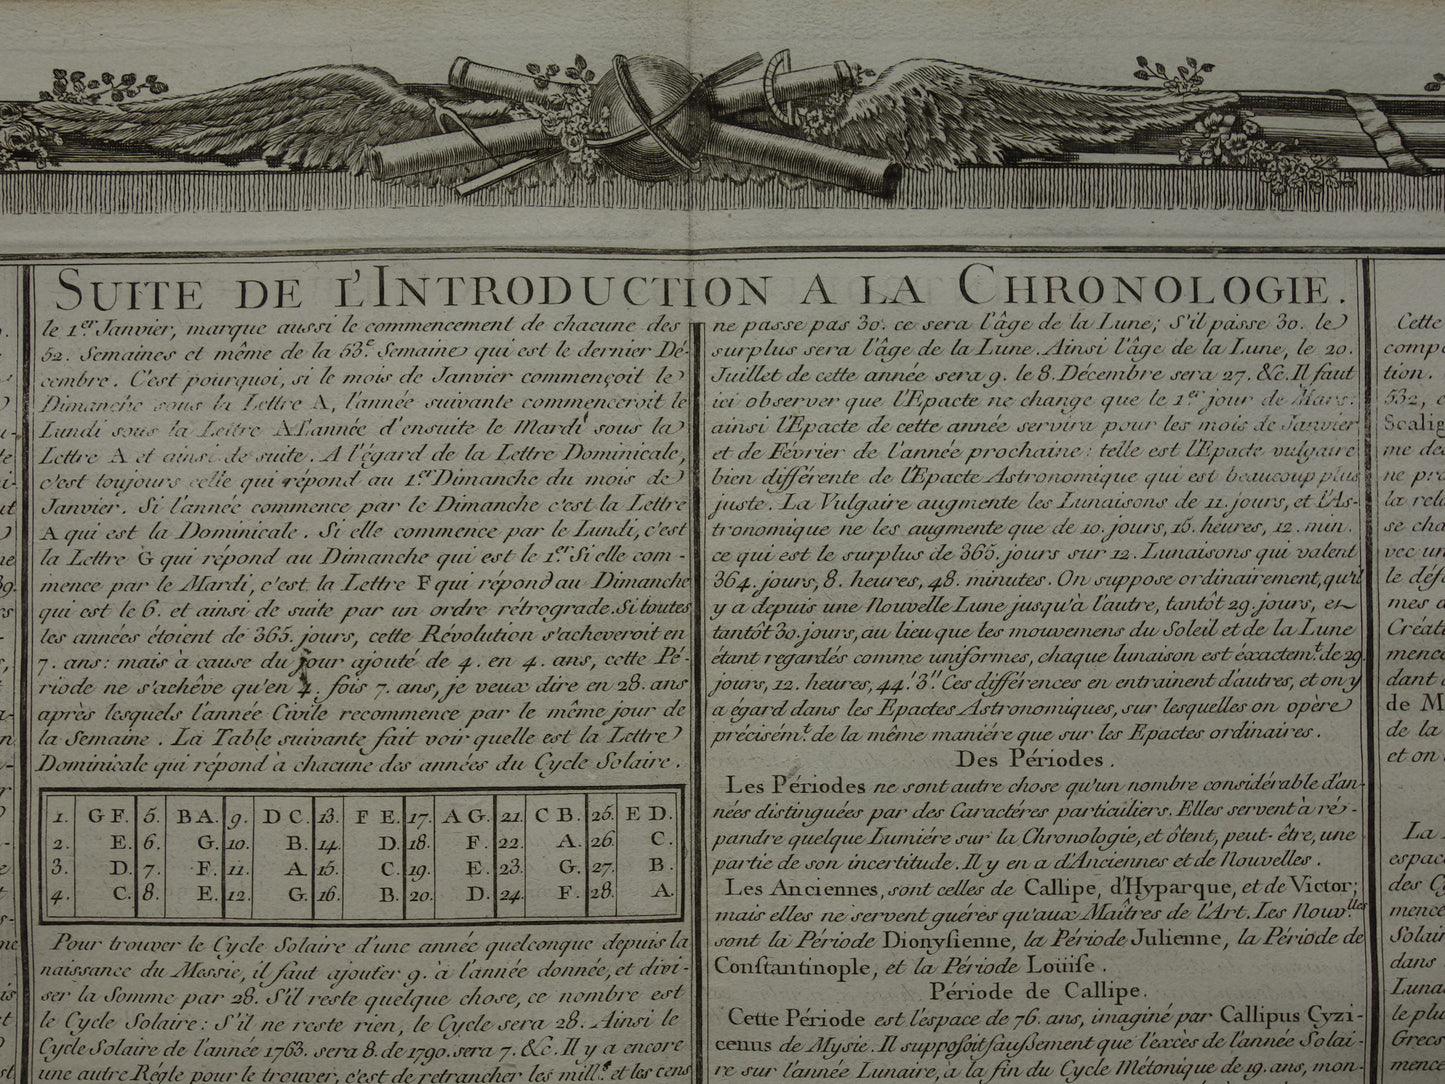 SUITE DE L'INTRODUCTION A LA CHRONOLOGIE.
le 1.er Janvier, marque aussi le commencement de chacune des
52. Semaines et même de la 53.e Semaine qui est le dernier Dé-
cembre. C'est pourquoi, si le mois de Janvier commençoit le
Dimanche sous la Lettre A, l'année suivante commenceroit le
Lundi sous la Lettre A l'année d'ensuite le Mardi sous la
Lettre A et ainsi de suite. A l'égard de la Lettre Dominicale,
c'est toujours celle qui répond au 1.er Dimanche du mois de
Janvier. Si l'année commence par le Dimanche c'est la Lettre
A qui est la Dominicale. Si elle commence par le Lundi, c'est
la Lettre G qui répond au Dimanche qui est le 1.er Si elle com-
mence par le Mardi, c'est la Lettre F qui répond au Dimanche
qui est le 6. et ainsi de suite par un ordre rétrograde. Si toutes
les années étoient de 365. jours, cette Révolution s'acheveroit en
7. ans: mais à cause du jour ajouté de 4. en 4. ans, cette Pé-
riode ne s'achêve qu'en 4. fois 7. ans, je veux dire en 28. ans
après lesquels l'année Civile recommence par le même jour de
la Semaine. La Table suivante fait voir quelle est la Lettre
Dominicale qui répond à chacune des années du Cycle Solaire.
1. G F. 5. B A. 9. D C. 13. F E. 17. A G. 21. C B. 25. E D.
2. E. 6. G. 10. B. 14. D. 18. F. 22. A. 26. C.
3. D. 7. F. 11. A. 15. C. 19. E. 23. G. 27. B.
4. C. 8. E. 12. G. 16. B. 20. D. 24. F. 28. A.
Pour trouver le Cycle Solaire d'une année quelconque depuis la
naissance du Messie, il faut ajouter 9. à l'année donnée, et divi-
ser la Somme par 28. S'il reste quelque chose, ce nombre est
le Cycle Solaire: S'il ne reste rien, le Cycle sera 28. Ainsi le
Cycle Solaire de l'année 1763. sera 8. de 1790. sera 7. &c. Il y a encore
une autre Régle pour le trouver, c'est de retrancher les mill.s et les cens
ne passe pas 30. ce sera l'âge de la Lune; S'il passe 30. le
surplus sera l'âge de la Lune. Ainsi l'âge de la Lune, le 20.
Juillet de cette année sera 9. le 8. Décembre sera 27. &c. Il faut
ici observer que l'Epacte ne change que le 1.er jour de Mars.
ainsi l'Epacte de cette année servira pour les mois de Janvier
et de Février de l'année prochaine: telle est l'Epacte vulgaire
bien différente de l'Epacte Astronomique qui est beaucoup plus
juste. La Vulgaire augmente les Lunaisons de 11. jours, et l'As-
tronomique ne les augmente que de 10. jours, 15. heures, 12. min.
ce qui est le surplus de 365. jours sur 12. Lunaisons qui valent
364. jours, 8. heures, 48. minutes. On suppose ordinairement, qu'il
y a depuis une Nouvelle Lune jusqu'à l'autre, tantôt 29. jours, et
tantôt 30. jours, au lieu que les mouvemens du Soleil et de la Lune
étant regardés comme uniformes, chaque lunaison est éxactem.t de 29.
jours, 12. heures, 44.' 3." Ces différences en entrainent d'autres, et on y
a égard dans les Epactes Astronomiques, sur lesquelles on opère
précisém.t de la même maniére que sur les Epactes ordinaires.
Des Périodes.
Les Périodes ne sont autre chose qu'un nombre considérable d'an-
nées distinguées par des Caractéres particuliers. Elles servent à ré-
pandre quelque Lumiére sur la Chronologie, et ôtent, peut-être, une
partie de son incertitude. Il y en a d'Anciennes et de Nouvelles.
Les Anciennes, sont celles de Callipe, d'Hyparque, et de Victor;
mais elles ne servent guéres qu'aux Maîtres de l'Art. Les Nouv.lles
sont la Période Dionyſienne, la Période Julienne, la Période de
Conſtantinople, et la Période Loüiſe.
Période de Callipe.
Cette Période est l'espace de 76. ans, imaginé par Callipus Cyzi-
cenus de Mysie. Il suppoſoit fauſſement que l'excès de l'année Solai-
re sur l'année Lunaire, à la fin du Cycle Métonique de 19. ans, mon-
Cette
comp
tion.
532,
Scalig
me de
ne pr
la rel
se cha
vec un
le déf
mes a
Créati
mence
dant
de M
de la
et on
La
espac
des C
mence
Solair
dans
Luna
le plu
Grecs
mence